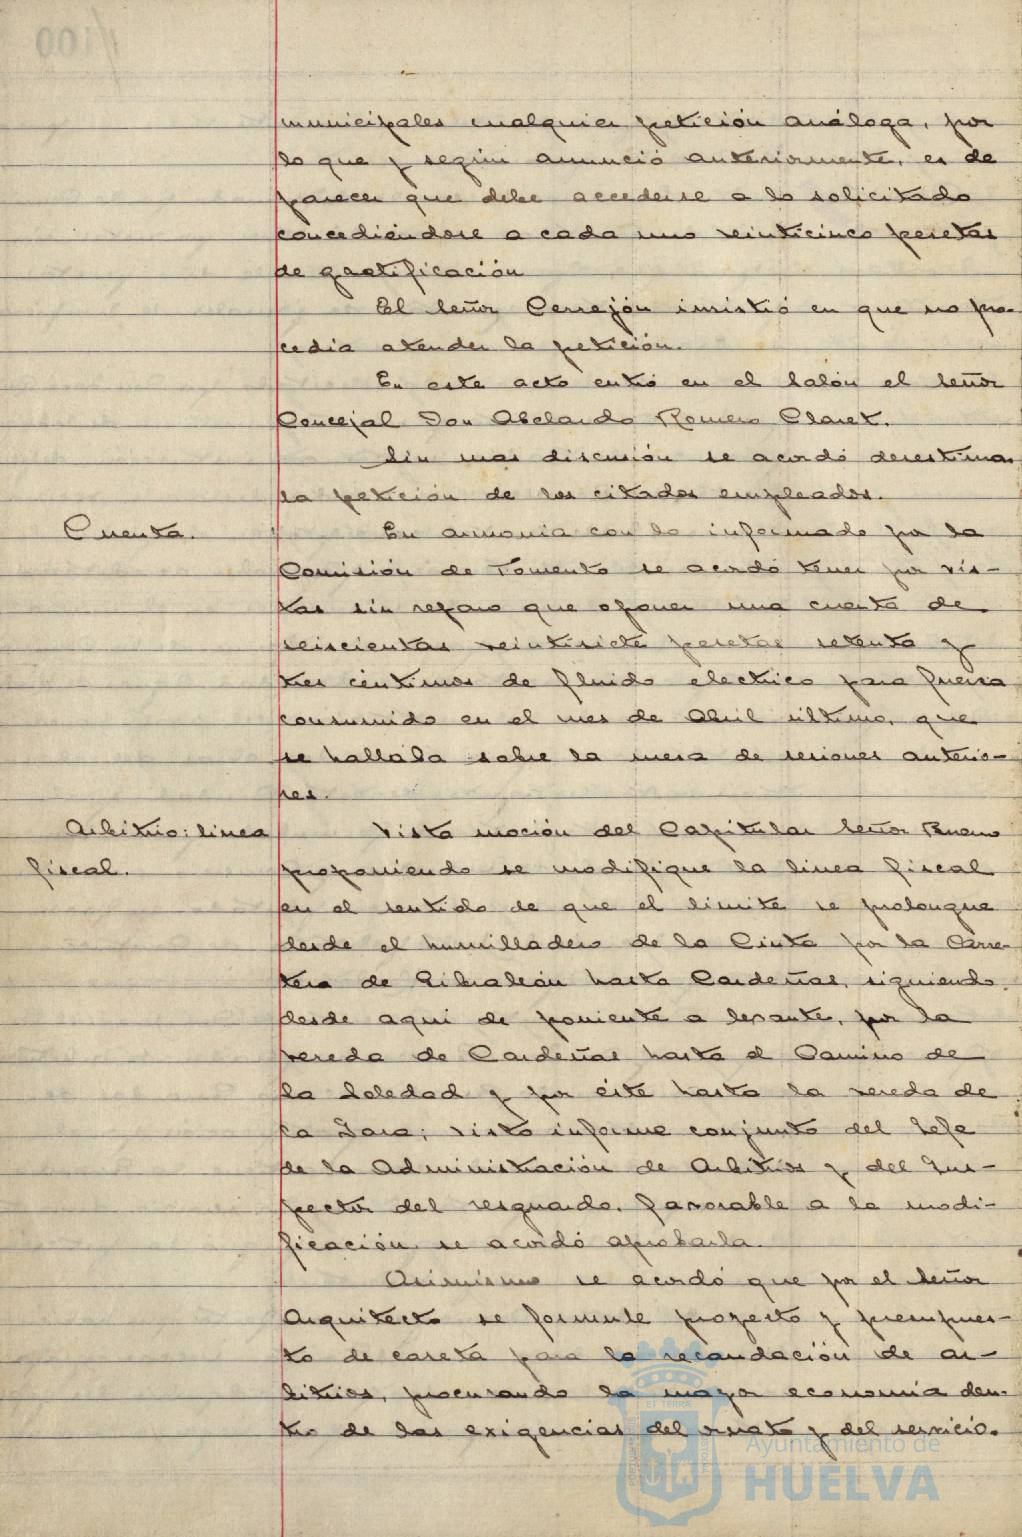 municipales cualquier petición análoga, por
lo que y según anunció anteriormente, es de
parecer que debe accederse a lo solicitado
concediéndose a cada uno veinticinco pesetas
de gratificación
El señor Cerrejón insistió en que no pro-
cedia atender la petición.
En este acto entró en el Salón el señor
Concejal Don Abelardo Romero Claret.
Sin mas discusión se acordó desestimar
la petición de los citados empleados.
Cuenta.
En armonia con lo informado por la
Comisión de Fomento se acordó tener por vis-
tas sin reparo que oponer una cuenta de
seiscientas veintisiete pesetas setenta y
tres céntimos de fluido electrico para fuerza
consumido en el mes de Abril último, que
se hallaba sobre la mesa de sesiones anterio-
res.
Arbitrio: linea
fiscal.
Vista moción del Capitular Señor Bueno
proponiendo se modifique la linea fiscal
en el sentido de que el limite se prolongue
desde el humilladero de la Cinta por la Carre-
tera de Gibraleón hasta Cardeñas, siguiendo
desde aqui de poniente a levante, por la
vereda de Cardeñas hasta el Camino de
la Soledad y por éste hasta la vereda de
la Jara; visto informe conjunto del Jefe
de la Administración de Arbitrios y del Ins-
pector del resguardo, favorable a la modi-
ficación se acordó aprobarla.
Asimismo se acordó que por el Señor
Arquitecto se formule proyecto y presupues-
to de caseta para la recaudación de ar-
bitrios, procurando la mayor economia den-
tro de las exigencias del ornato y del servicio.
Ayuntamiento de
HUELVA